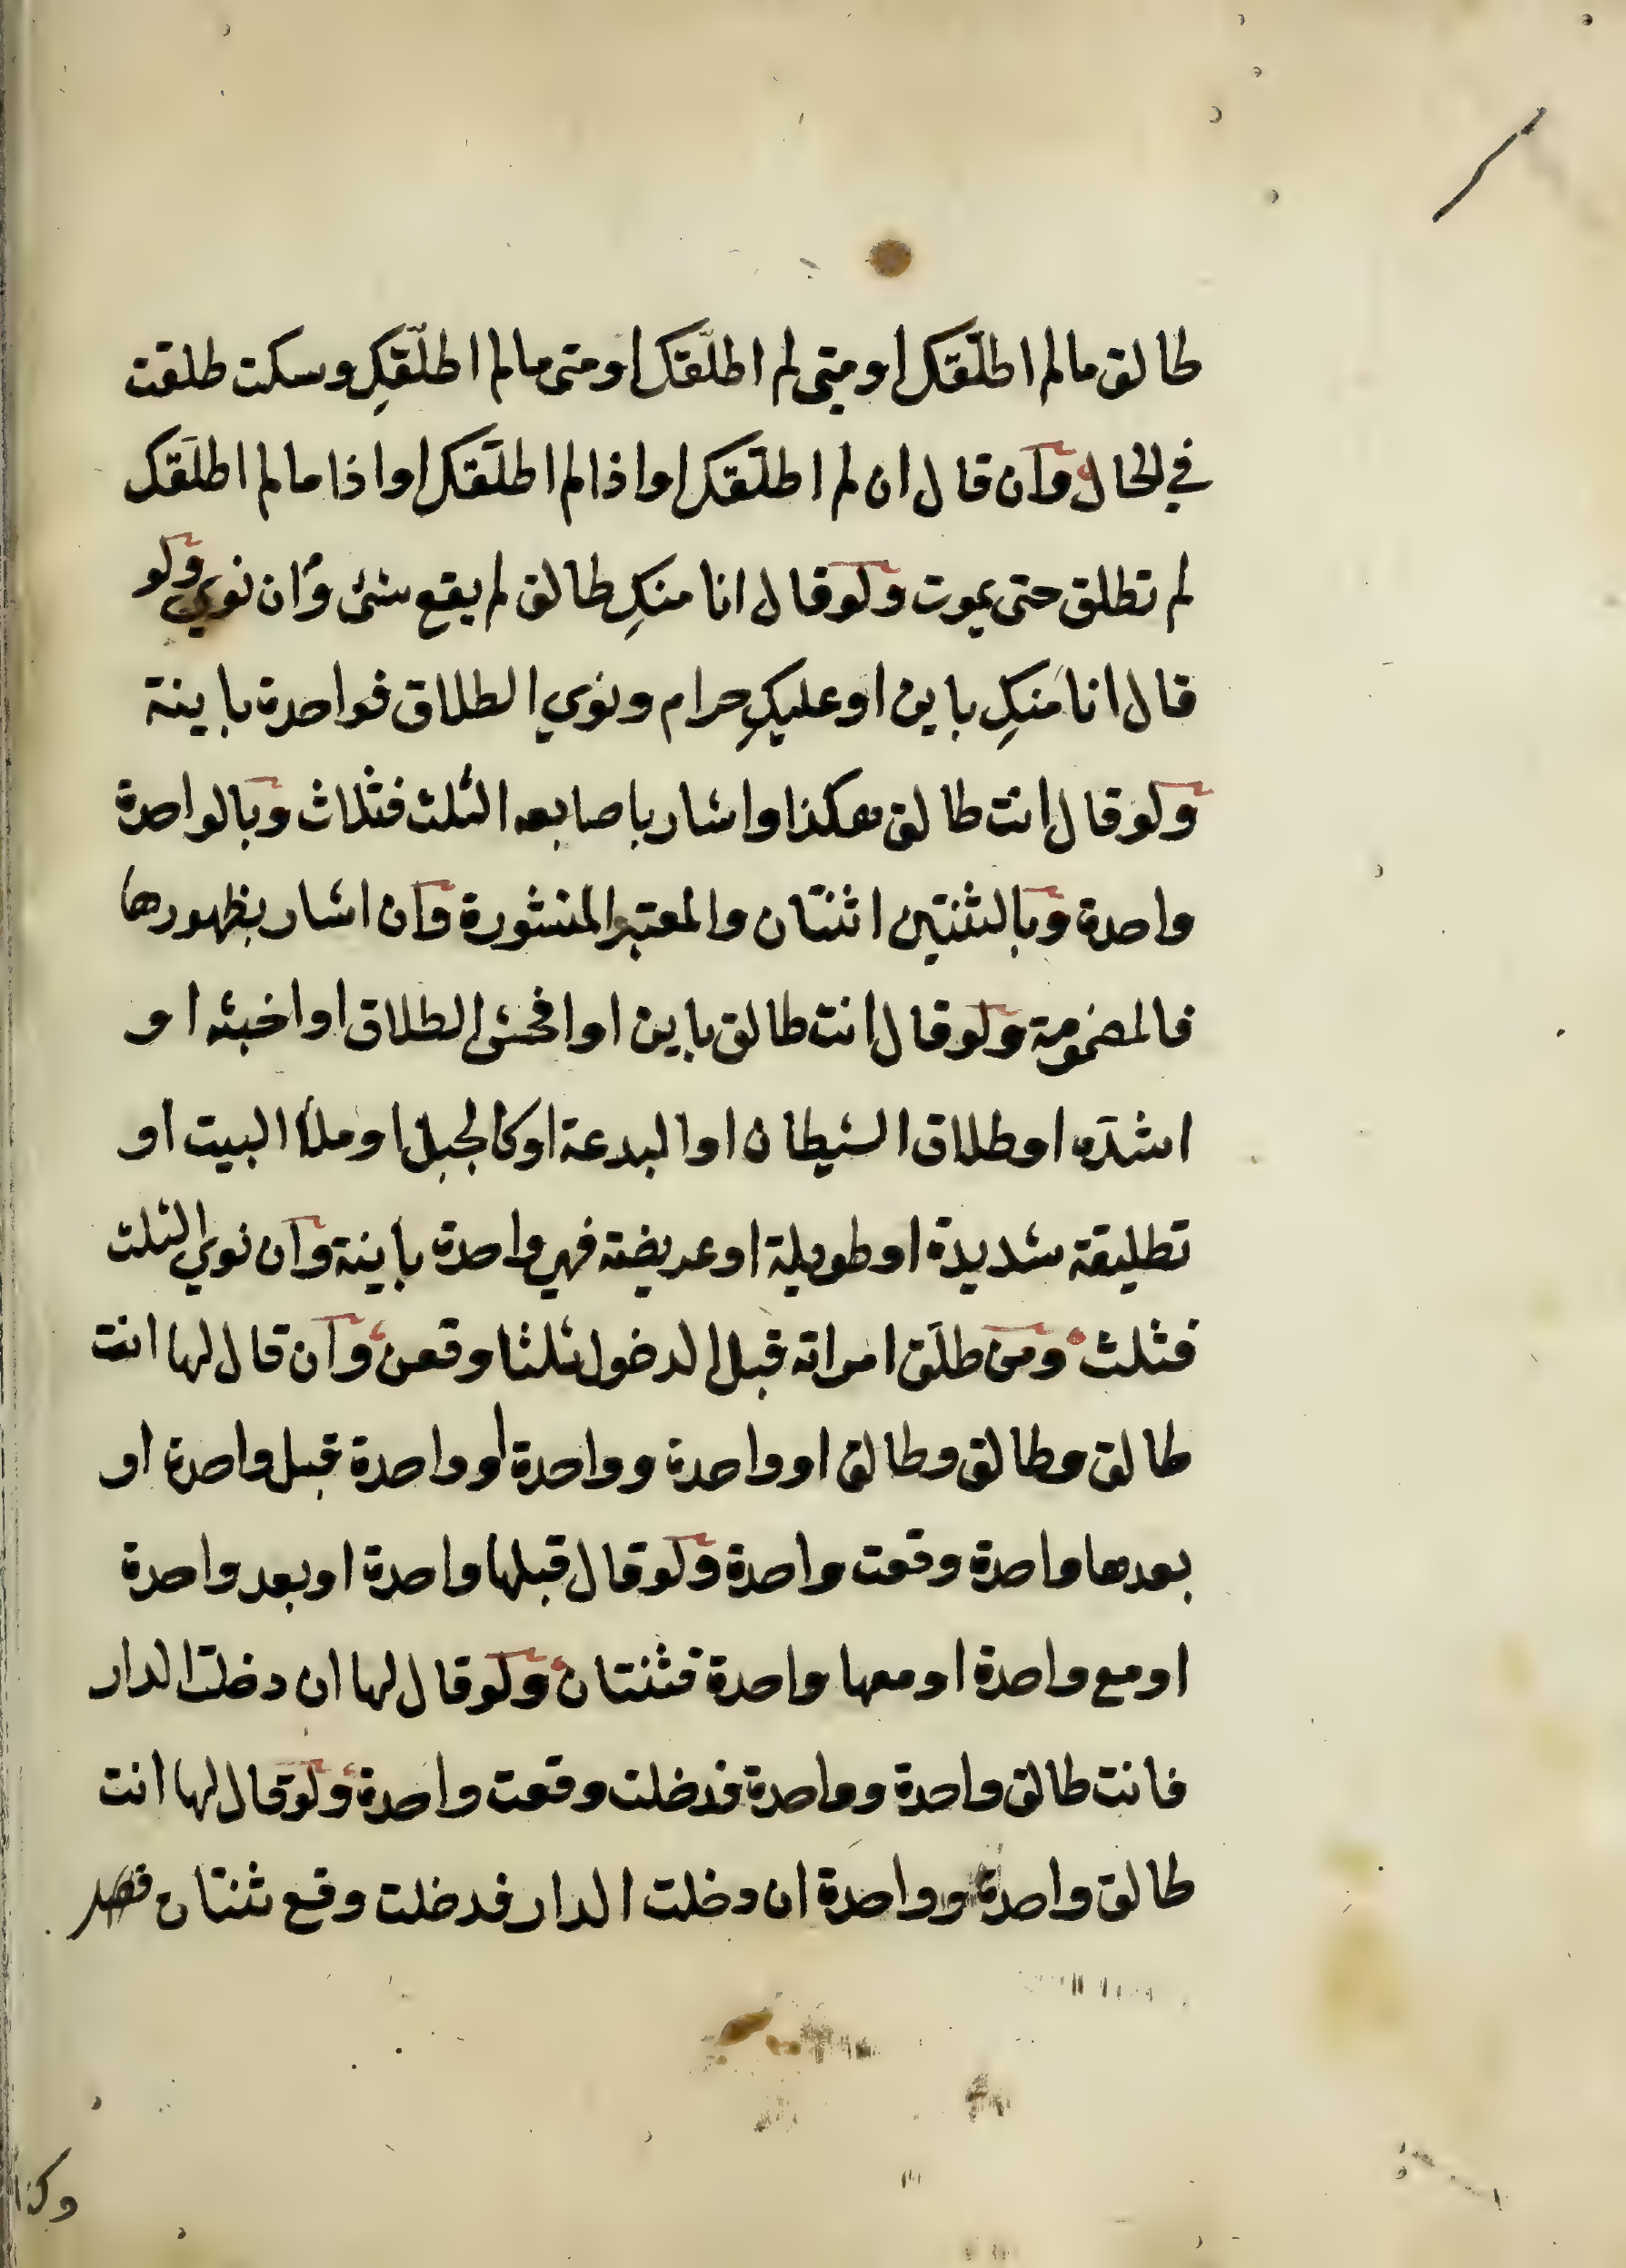 طالق مالم اطلّقك او متى لم اطلّقك او متى مالم اطلّقكِ وسكت طلقت
في الحال وان قال ان لم اطلّقك او اذا لم اطلّقك او اذا مالم اطلّقك
لم تطلق حتى يموت ولو قال انا منكِ طالق لم يقع شئ وان نوي ولو
قال انا منكِ باين او عليكِ حرام ونوي الطلاق فواحدة باينة
ولو قال انت طالق هكذا واشار باصابعه الثلث فثلاث وبالواحدة
واحدة وبالثنتين اثنتان والمعتبر المنشورة وان اشار بظهورها
فالمضمومة ولو قال انت طالق باين او افحش الطلاق او اخبثه او
اشدّه او طلاق الشيطان او البدعة او كالجبل او ملأ البيت او
تطليقة شديدة او طويلة او عريضة فهي واحدة باينة وان نوي الثلث
فثلث ومن طلّق امراته قبل الدخول ثلثا وقعن وان قال لها انت
طالق وطالق وطالق او واحدة وواحدة او واحدة قبل واحدة او
بعدها واحدة وقعت واحدة ولو قال قبلها واحدة او بعد واحدة
او مع واحدة او معها واحدة فثنتان ولو قال لها ان دخلت الدار
فانت طالق واحدة وواحدة فدخلت وقعت واحدة ولو قال لها انت
طالق واحدة وواحدة ان دخلت الدار فدخلت وقع ثنتان فصل